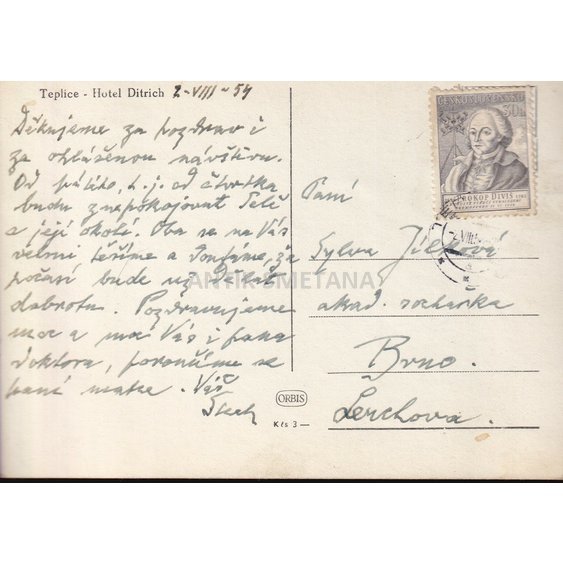 Teplice - Hotel Ditrich 2-VIII-54
Děkujeme za pozdrav i
za ohlášenou návštěvu.
Od pátého, t.j. od čtvrtka
budu znepokojovat Telč
a její okolí. Oba se na Vás
velmi těšíme a doufáme, že
počasí bude už
dobrotu. Pozdravujeme
moc a moc Vás i pana
doktora, poroučíme se
paní matce. Váš
ČESKOSLOVENSKO
PROKOP DIVIŠ
Paní
Sylva Jílková
akad. sochařka
Brno.
Lerchova.
ANTIK SMETANA
ORBIS
Kčs 3—